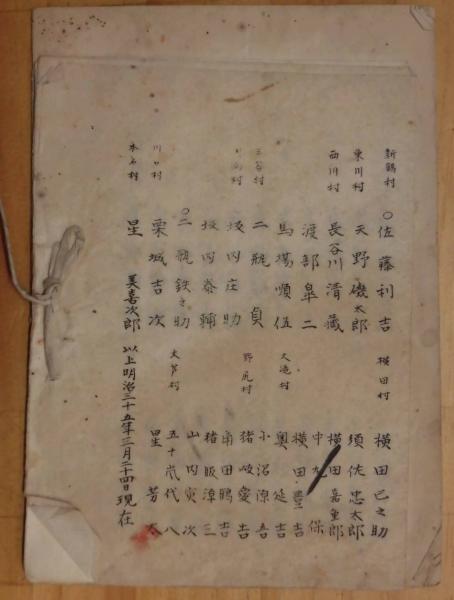 新鶴村 ○佐藤利吉 横田村 横田巳之助
東川村 天野磯太郎 須佐忠太郎
西川村 長谷川清蔵 横田喜重郎
渡部皐二 中丸保
馬場順伍 大滝村 横田豊吉
二瓶貞 奥延吉
坂内庄助 野尻村 小沼源吾
坂内泰輔 猪岐愛吉
○二瓶鉄之助 大芦村 角田鶴吉
川口村 栗城吉次 猪股漳三
本名村 星美喜次郎 山内寅次
五十嵐代八
星芳太
以上明治三十五年三月二十四日現在